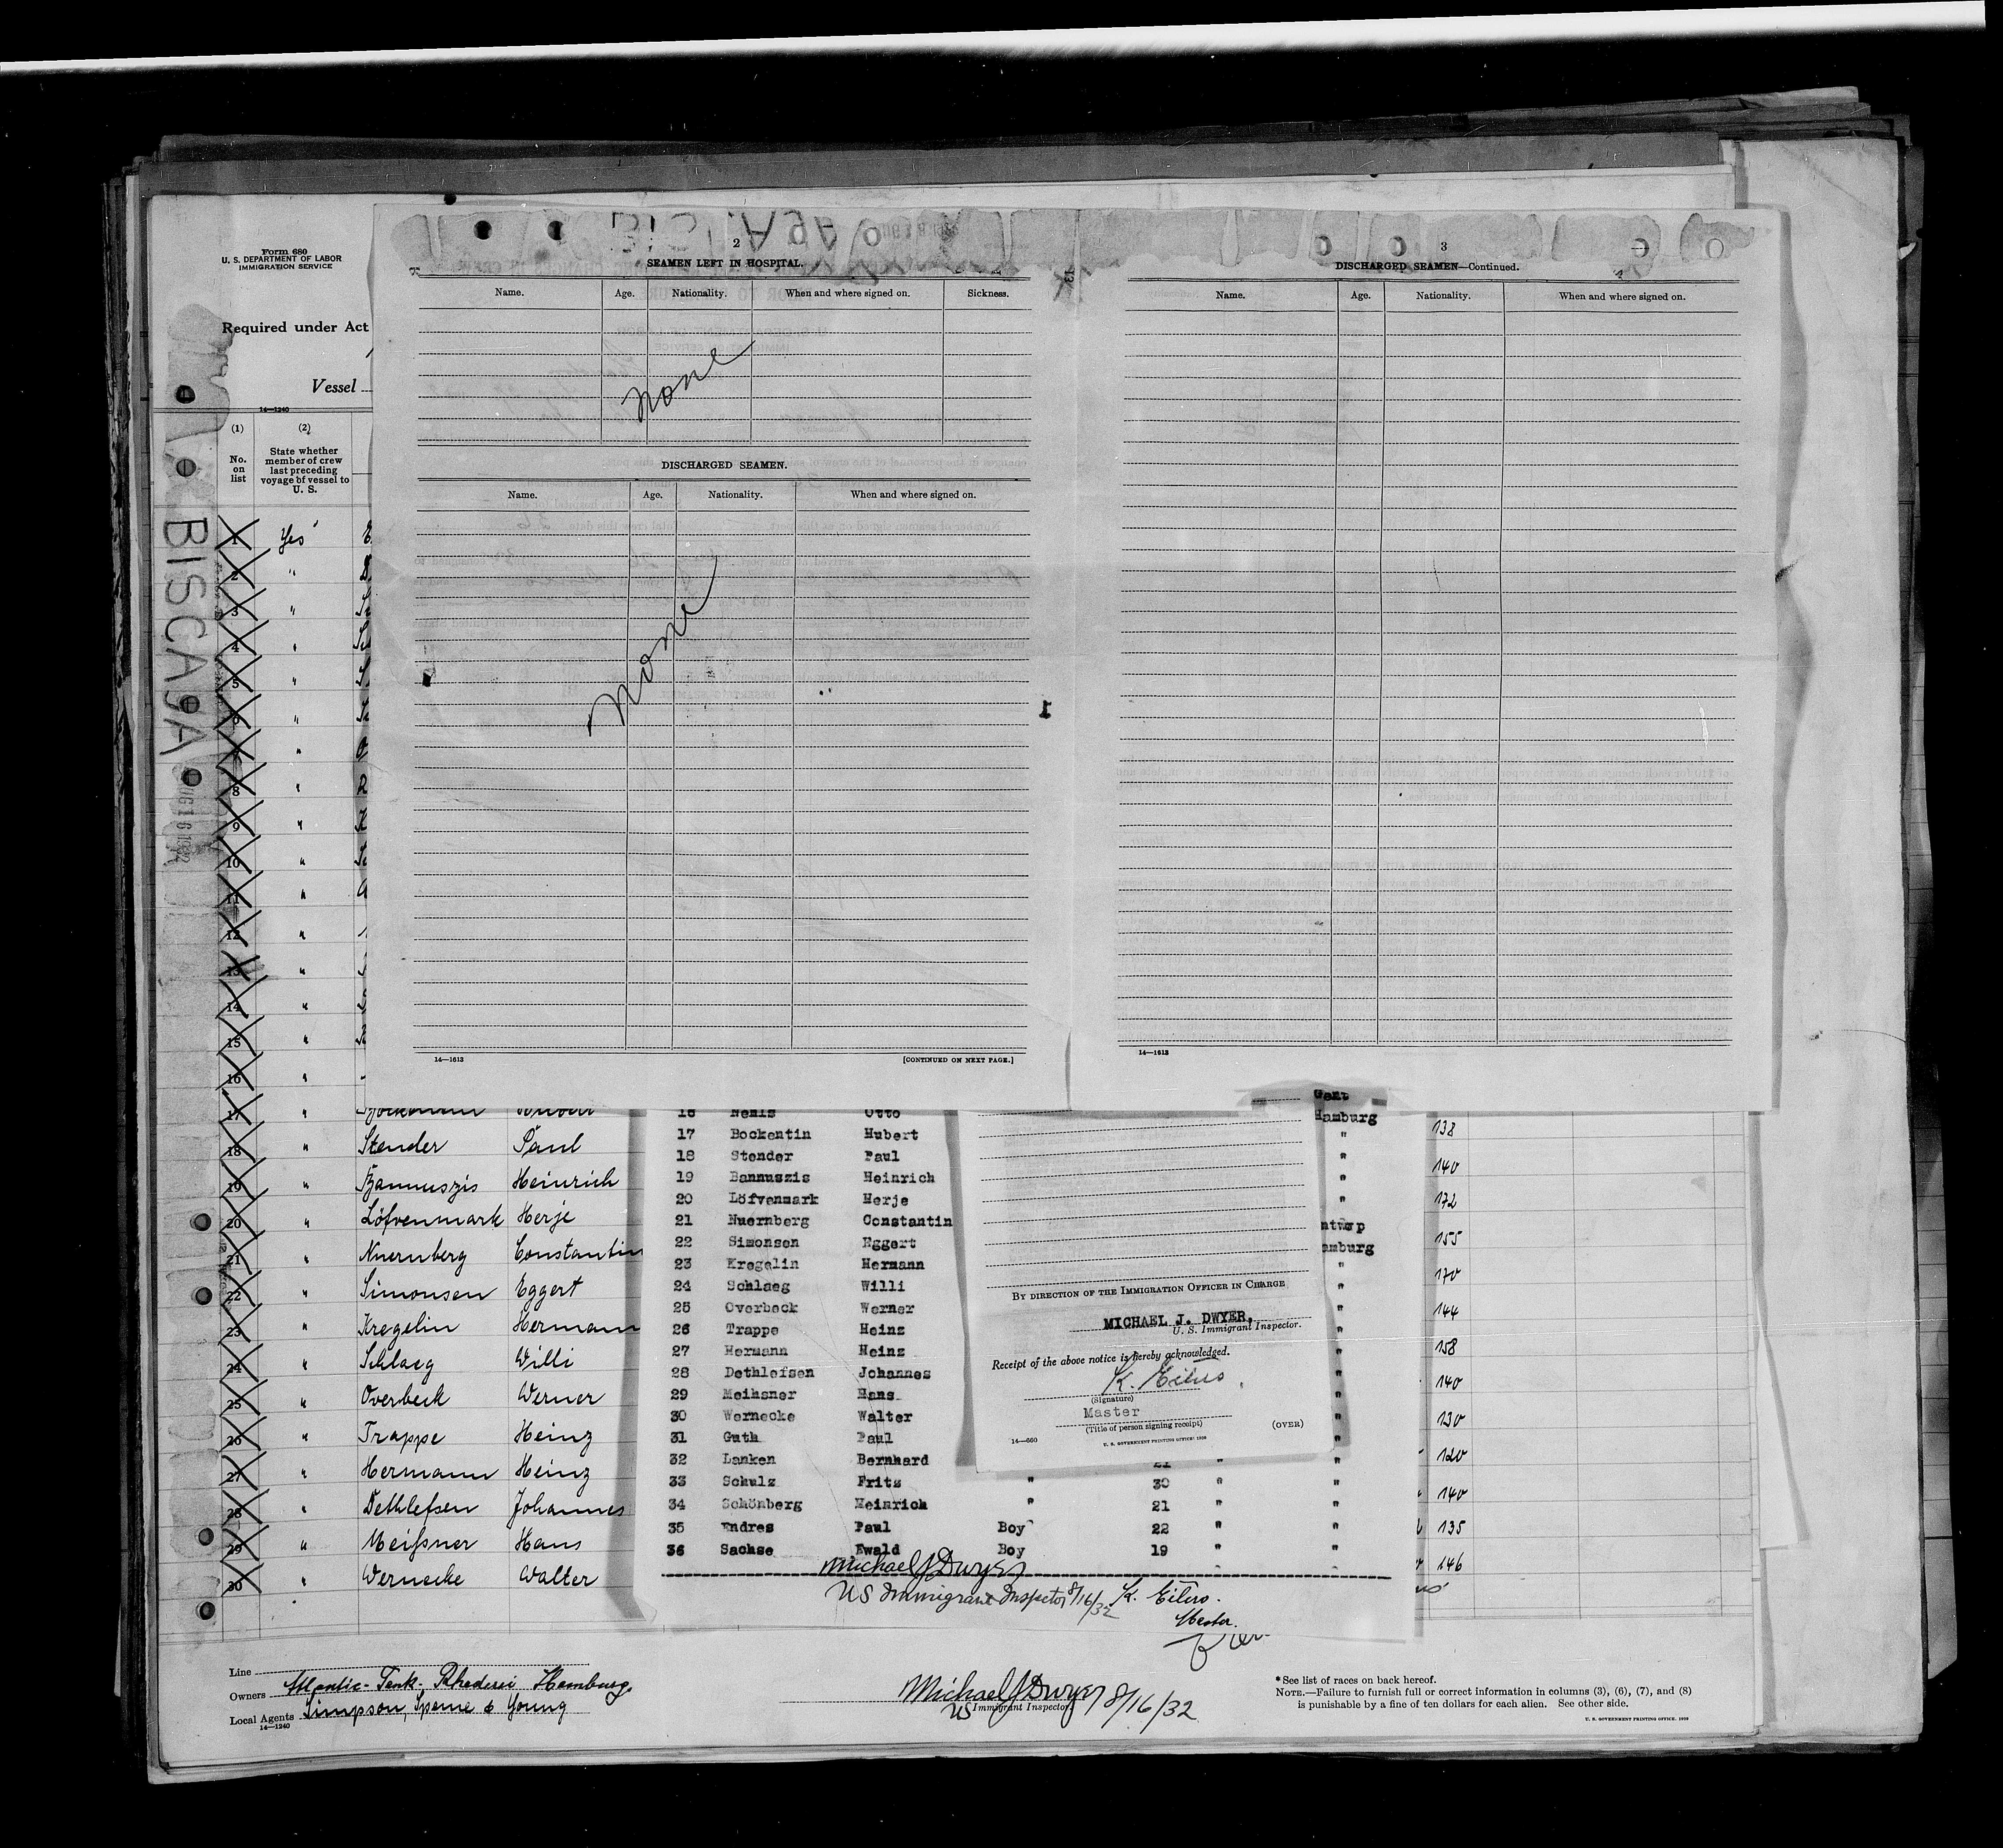 Form 680
U. S. DEPARTMENT OF LABOR
IMMIGRATION SERVICE
Required under Act
Vessel
14—1240
(1) (2)
No. on list
State whether member of crew last preceding voyage of vessel to U. S.
BISCAYA
1 Yes
2 "
3 "
4 "
5 "
6 "
7 "
8 "
9 "
10 "
11 "
12 "
13 "
14 "
15 "
16 "
17 "
18 " Stender Paul
19 " Bannuszis Heinrich
20 " Löfvenmark Herje
21 " Nuernberg Constantin
22 " Simonsen Eggert
23 " Kregelin Hermann
24 " Schlaeg Willi
25 " Overbeck Werner
26 " Trappe Heinz
27 " Hermann Heinz
28 " Dethlefsen Johannes
29 " Meißner Hans
30 " Wernecke Walter
Line
Owners Atlantic-Tank-Rhederei Hamburg
Local Agents Simpson, Spence & Young
14—1240
2
SEAMEN LEFT IN HOSPITAL.
Name. Age. Nationality. When and where signed on. Sickness.
None
DISCHARGED SEAMEN.
Name. Age. Nationality. When and where signed on.
None
14—1613 [CONTINUED ON NEXT PAGE.]
3
DISCHARGED SEAMEN—Continued.
Name. Age. Nationality. When and where signed on.
14—1613
Gent
16 Nehls Otto Hamburg
17 Bockentin Hubert "
18 Stender Paul "
19 Bannuszis Heinrich "
20 Löfvenmark Herje "
21 Nuernberg Constantin ntwerp
22 Simonsen Eggert amburg
23 Kregelin Hermann "
24 Schlaeg Willi "
25 Overbeck Werner "
26 Trappe Heinz "
27 Hermann Heinz "
28 Dethlefsen Johannes "
29 Meihsner Hans "
30 Wernecke Walter "
31 Guth Paul "
32 Lanken Bernhard 21 " "
33 Schulz Fritz " 30 " "
34 Schönberg Heinrich " 21 " "
35 Endres Paul Boy 22 " "
36 Sachse Ewald Boy 19 " "
Michael J Dwyer
US Immigrant Inspector 8/16/32
K. Eilers.
Master.
BY DIRECTION OF THE IMMIGRATION OFFICER IN CHARGE
MICHAEL J. DWYER,
U. S. Immigrant Inspector.
Receipt of the above notice is hereby acknowledged.
K. Eilers
(Signature)
Master
(Title of person signing receipt)
(OVER)
14—660
U. S. GOVERNMENT PRINTING OFFICE: 1928
138
140
172
155
170
144
158
140
130
120
140
135
146
Michael J Dwyer 8/16/32
US Immigrant Inspector.
*See list of races on back hereof.
NOTE.—Failure to furnish full or correct information in columns (3), (6), (7), and (8)
is punishable by a fine of ten dollars for each alien. See other side.
U. S. GOVERNMENT PRINTING OFFICE: 1928